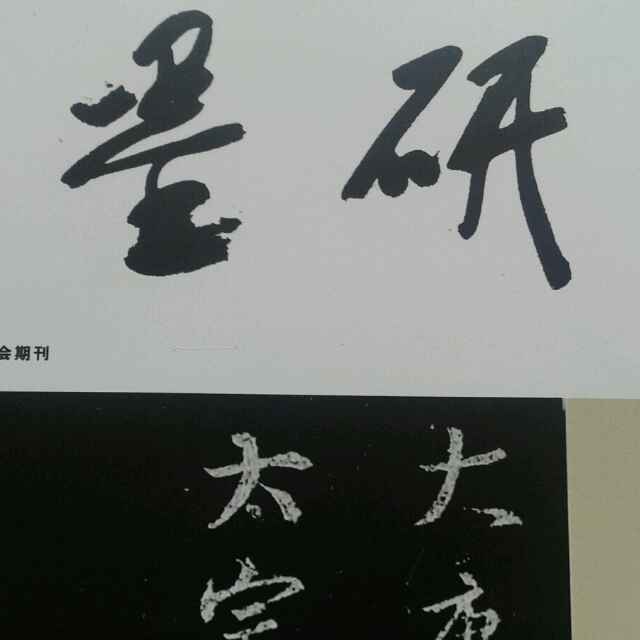 研墨
会期刊
大唐
太宗